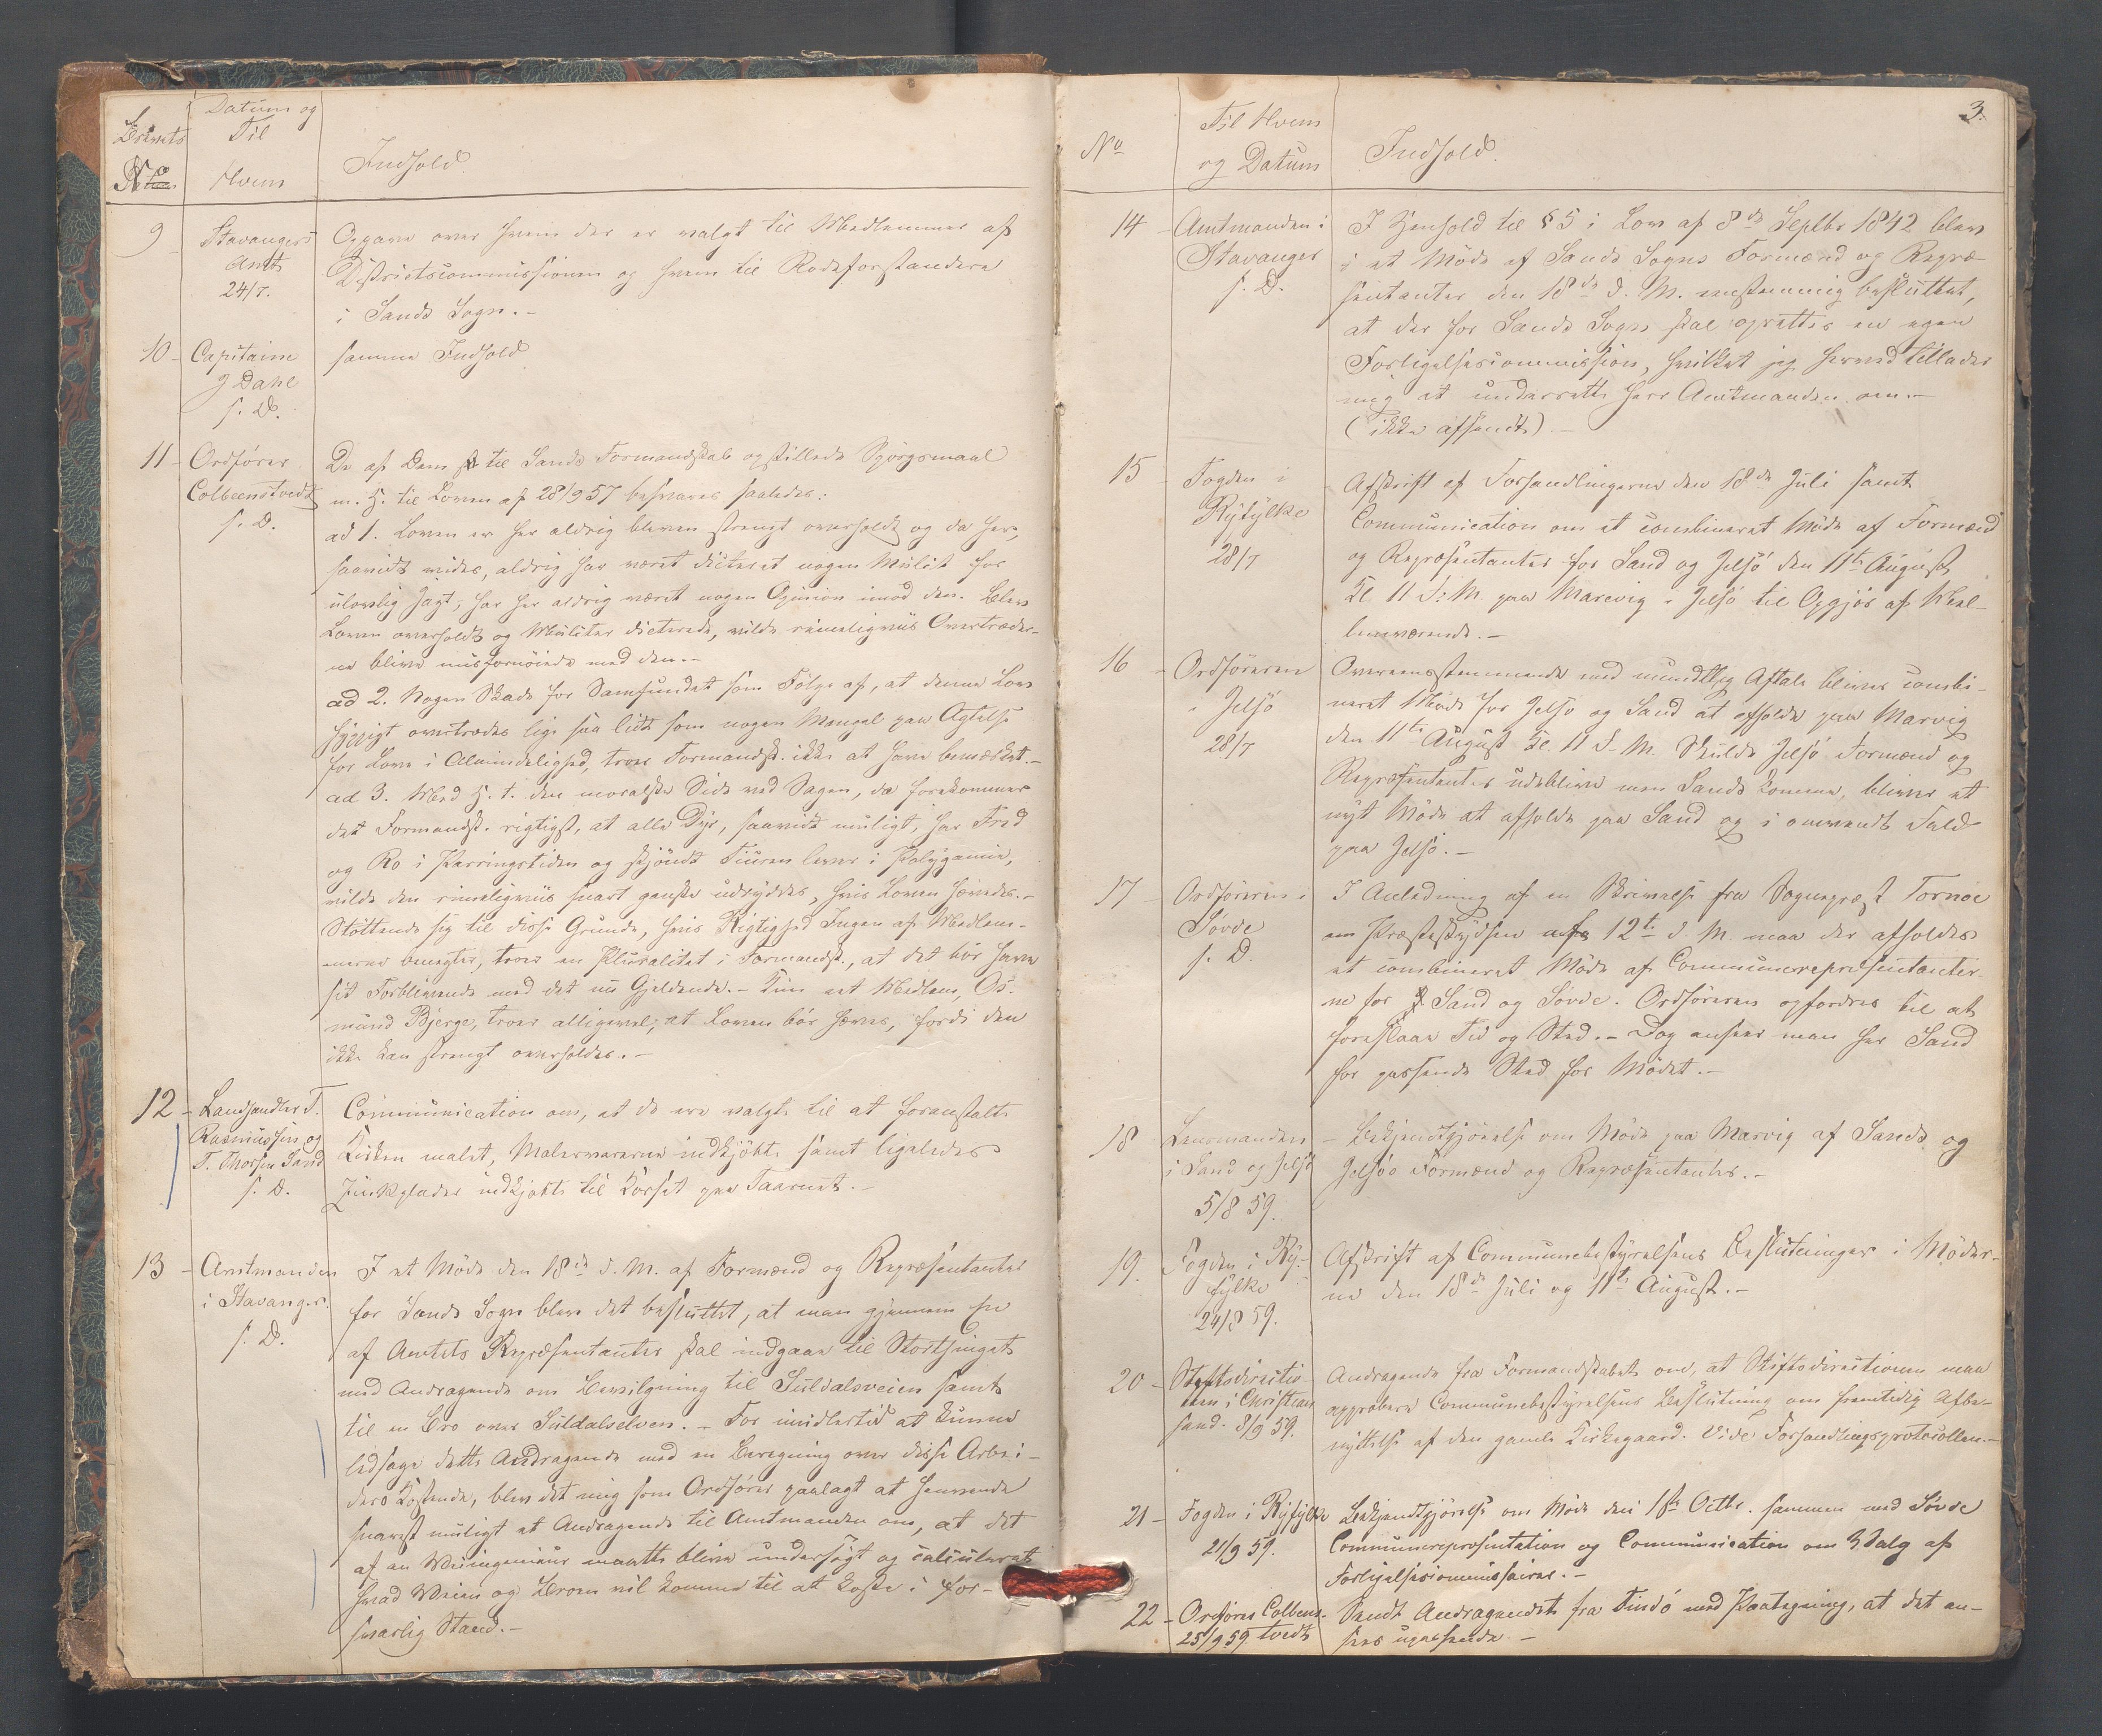 Brevets
No
Datum og
Til
Hvem
Indhold.
9
Stavangers
Amt
24/7.
Opgave over hvem der er valgt til Medlemmer af
Districtscommissionen og hvem til Rodeforstandere
i Sands Sogn.-
10-
Capitaine
J Dahl
s. D.
samme Indhold
11-
Ordfører
Colbeenstvedt
s. D.
De af Dem til Sands Formandskab opstillede Spörgsmaal
m. H. til Loven af 28/9 57 besvares saaledes:
ad 1. Loven er her aldrig bleven strengt overholdt og da her,
saavidt vides, aldrig har været dicteret nogen Mulct for
ulovlig Jagt, har her aldrig været nogen Opinion imod den. Blev
Loven overholdt og Mulcter dicterede, vilde rimeligviis Overtræder-
ne blive misfornöiede med den.-
ad 2. Nogen Skade for Samfundet som Fölge af, at denne Lov
hyppigt overtrædes lige saa lidt som nogen Mangel paa Agtelse
for Love i Almindelighed, troer Formandsk. ikke at have bemærket.-
ad 3. Med H. t. den moralske Side ved Sagen, da forekommer
det Formandsk. rigtigst, at alle Dyr, saavidt muligt, har Fred
og Ro i Parringstiden og skjöndt Tiuren lever i Polygamie,
vilde den rimeligviis snart ganske udryddes, hvis Loven hævedes.-
Støttende sig til disse Grunde, hvis Rigtighed Ingen af Medlem-
merne benegter, troer en Pluralitet i Formandsk., at det bör have
sit Forblivende med det nu Gjeldende.- Kun eet Medlem, Os-
mund Bjerge, troer alligevel, at Loven bör hæves, fordi den
ikke kan strengt overholdes.-
12-
Landhandler T.
Rasmussen og
T. Thorsen Sand
s. D.
Communication om, at de ere valgte til at foranstalte
Kirken malet, Malervarerne indkjøbte samt ligeledes
Zinkplader indkjøbte til Korset paa Taarnet.-
13-
Amtmanden
i Stavanger.
s. D.
I et Møde den 18de d. M. af Formænd og Repræsentanter
for Sands Sogn blev det besluttet, at man gjennem En
af Amtets Repræsentanter skal indgaae til Storthinget
med Andragende om Bevilgning til Suldalsveien samt
til en Bro over Suldalselven.- For imidlertid at kunne
ledsage dette Andragende med en Beregning over disse Arbei-
ders Kostende, blev det mig som Ordfører paalagt at henvende
snarest muligt et Andragende til Amtmanden om, at det
af en Veiingenieur maatte blive undersögt og calculeret
hvad Veien og Broen vil komme til at koste i for-
svarlig Stand.-
3.
No
Til Hvem
og Datum
Indhold.
14
Amtmanden i
Stavanger
s. D.
I Henhold til § 5 i Lov af 8de Septbr 1842 blev
i et Møde af Sands Sogns Formænd og Repræ-
sentanter den 18de d. M. eenstemmig besluttet,
at der for Sands Sogn skal oprettes en egen
Forligelsescommission, hvilket jeg herved tillader
mig at underrette Herr Amtmanden om.-
(ikke afsendt)-
15
Fogden i
Ryfylke
28/7
Afskrift af Forhandlingerne den 18de Juli samt
Communication om et combineret Møde af Formænd
og Repræsentanter for Sand og Jelsö den 11te August
Kl 11 F: M. paa Marevig i Jelsö til Opgjör af Mel-
lemværende.-
16
Ordföreren
i Jelsö
28/7
Overensstemmende med mundtlig Aftale bliver combi-
neret Møde for Jelsö og Sand at afholde paa Marvig
den 11te August Kl. 11 F. M. Skulde Jelsö Formænd og
Repræsentanter udeblive men Sands komme, bliver et
nyt Møde at afholde paa Sand og i omvendt Fald
paa Jelsö.-
17
Ordföreren i
Søvde
s. D.
I Anledning af en Skrivelse fra Sognepræst Tornöe
om Præsteskydsen af 12te d M. maa der afholdes
et combineret Møde af Communerepræsentanter-
ne for Sand og Søvde. Ordföreren opfordres til at
foreslaae Tid og Sted.- Dog anseer man her Sand
for passende Sted for Mødet.-
18
Lensmanden
i Sand og Jelsö
5/8 59.
- Bekjendtgjörelse om Møde paa Marvig af Sands og
Jelsöe Formænd og Repræsentanter.-
19.
Fogden i Ry-
fylke
24/8 59.
Afskrift af Communebestyrelsens Beslutninger i Møder-
ne den 18de Juli og 11te August.-
20-
Stiftsdirectio-
nen i Christian-
sand. 8/9 59.
Andragende fra Formandskabet om, at Stiftsdirectionen maa
approbere Communebestyrelsens Beslutning om fremtidig Afbe-
nyttelse af den gamle Kirkegaard. Vide Forhandlingsprotocollen.-
21-
Fogden i Ryfylke
21/9 59.
Bekjendtgjörelse om Møde den 1ste Octbr. sammen med Søvde
Communerepræsentation og Communication om Valg af
Forligelsescommissairer.-
22-
Ordfører Colbens-
25/9 59 tvedt
Sendt Andragendet fra Findö med Paategning, at det an-
sees upassende.-